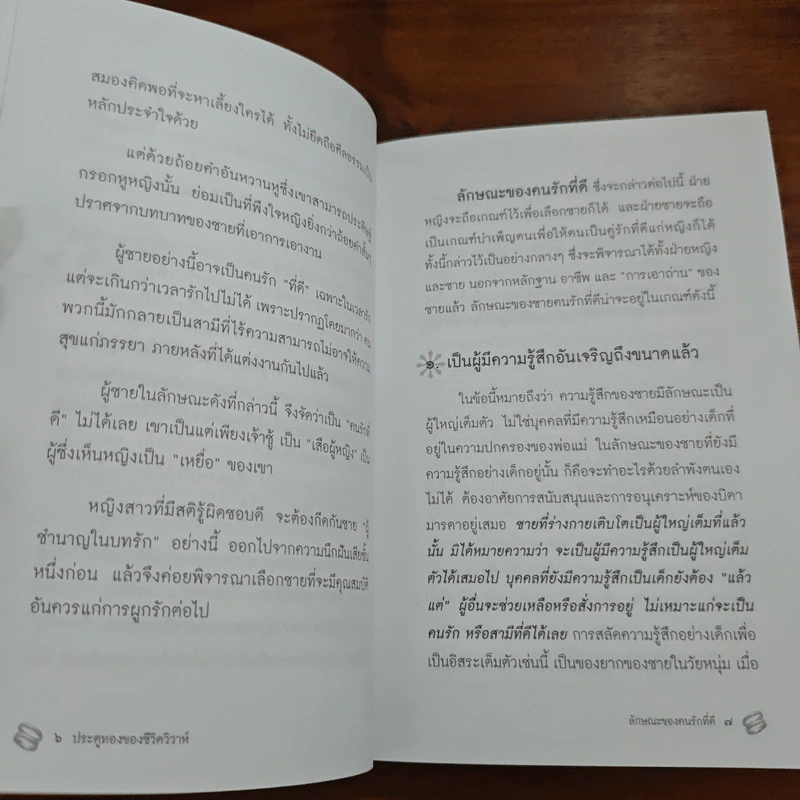 สมองคิดพอที่จะหาเลี้ยงใครได้ ทั้งไม่ยึดถือศีลธรรมเป็น
หลักประจำใจด้วย
แต่ด้วยถ้อยคำอันหวานหูซึ่งเขาสามารถประดิษฐ์
กรอกหูหญิงนั้น ย่อมเป็นที่พึงใจหญิงยิ่งกว่าถ้อยคำสั้นๆ
ปราศจากบทบาทของชายที่เอาการเอางาน
ผู้ชายอย่างนี้อาจเป็นคนรัก "ที่ดี" เฉพาะในเวลารัก
แต่จะเกินกว่าเวลารักไปไม่ได้ เพราะปรากฏโดยมากว่า คน
พวกนี้มักกลายเป็นสามีที่ไร้ความสามารถไม่อาจให้ความ
สุขแก่ภรรยา ภายหลังที่ได้แต่งงานกันไปแล้ว
ผู้ชายในลักษณะดังที่กล่าวนี้ จึงจัดว่าเป็น "คนรักที่
ดี" ไม่ได้เลย เขาเป็นแต่เพียงเจ้าชู้ เป็น "เสือผู้หญิง" เป็น
ผู้ซึ่งเห็นหญิงเป็น "เหยื่อ" ของเขา
หญิงสาวที่มีสติรู้ผิดชอบดี จะต้องกีดกันชาย "ผู้
ชำนาญในบทรัก" อย่างนี้ ออกไปจากความนึกฝันเสียชั้น
หนึ่งก่อน แล้วจึงค่อยพิจารณาเลือกชายที่จะมีคุณสมบัติ
อันควรแก่การผูกรักต่อไป
๖ ประตูทองของชีวิตวิวาห์
ลักษณะของคนรักที่ดี ซึ่งจะกล่าวต่อไปนี้ ฝ่าย
หญิงจะถือเกณฑ์ไว้เพื่อเลือกชายก็ได้ และฝ่ายชายจะถือ
เป็นเกณฑ์บำเพ็ญตนเพื่อให้ตนเป็นคู่รักที่ดีแก่หญิงก็ได้
ทั้งนี้กล่าวไว้เป็นอย่างกลางๆ ซึ่งจะพิจารณาได้ทั้งฝ่ายหญิง
และชาย นอกจากหลักฐาน อาชีพ และ "การเอาถ่าน" ของ
ชายแล้ว ลักษณะของชายคนรักที่ดีน่าจะอยู่ในเกณฑ์ดังนี้
๑. เป็นผู้มีความรู้สึกอันเจริญถึงขนาดแล้ว
ในข้อนี้หมายถึงว่า ความรู้สึกของชายมีลักษณะเป็น
ผู้ใหญ่เต็มตัว ไม่ใช่บุคคลที่มีความรู้สึกเหมือนอย่างเด็กที่
อยู่ในความปกครองของพ่อแม่ ในลักษณะของชายที่ยังมี
ความรู้สึกอย่างเด็กอยู่นั้น ก็คือจะทำอะไรด้วยลำพังตนเอง
ไม่ได้ ต้องอาศัยการสนับสนุนและการอนุเคราะห์ของบิดา
มารดาอยู่เสมอ ชายที่ร่างกายเติบโตเป็นผู้ใหญ่เต็มที่แล้ว
นั้น มิได้หมายความว่า จะเป็นผู้มีความรู้สึกเป็นผู้ใหญ่เต็ม
ตัวได้เสมอไป บุคคลที่ยังมีความรู้สึกเป็นเด็กยังต้อง "แล้ว
แต่" ผู้อื่นจะช่วยเหลือหรือสั่งการอยู่ ไม่เหมาะแก่จะเป็น
คนรัก หรือสามีที่ดีได้เลย การสลัดความรู้สึกอย่างเด็กเพื่อ
เป็นอิสระเต็มตัวเช่นนี้ เป็นของยากของชายในวัยหนุ่ม เมื่อ
ลักษณะของคนรักที่ดี ๗